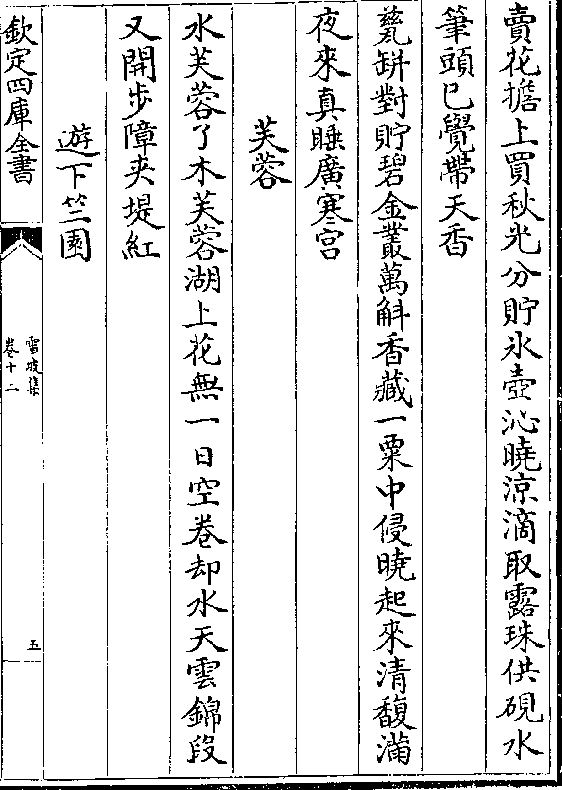 賣花擔上買秋光分貯氷壺沁曉涼滴取露珠供硯水
筆頭已覺帶天香
甆缾對貯碧金叢萬斛香藏一粟中侵曉起來清馥滿
夜來真睡廣寒宫
芙蓉
水芙蓉了木芙蓉湖上花無一日空卷却水天雲錦段
又開步障夹堤紅
遊下竺園
欽定四庫全書
雪坡集
卷十二
五